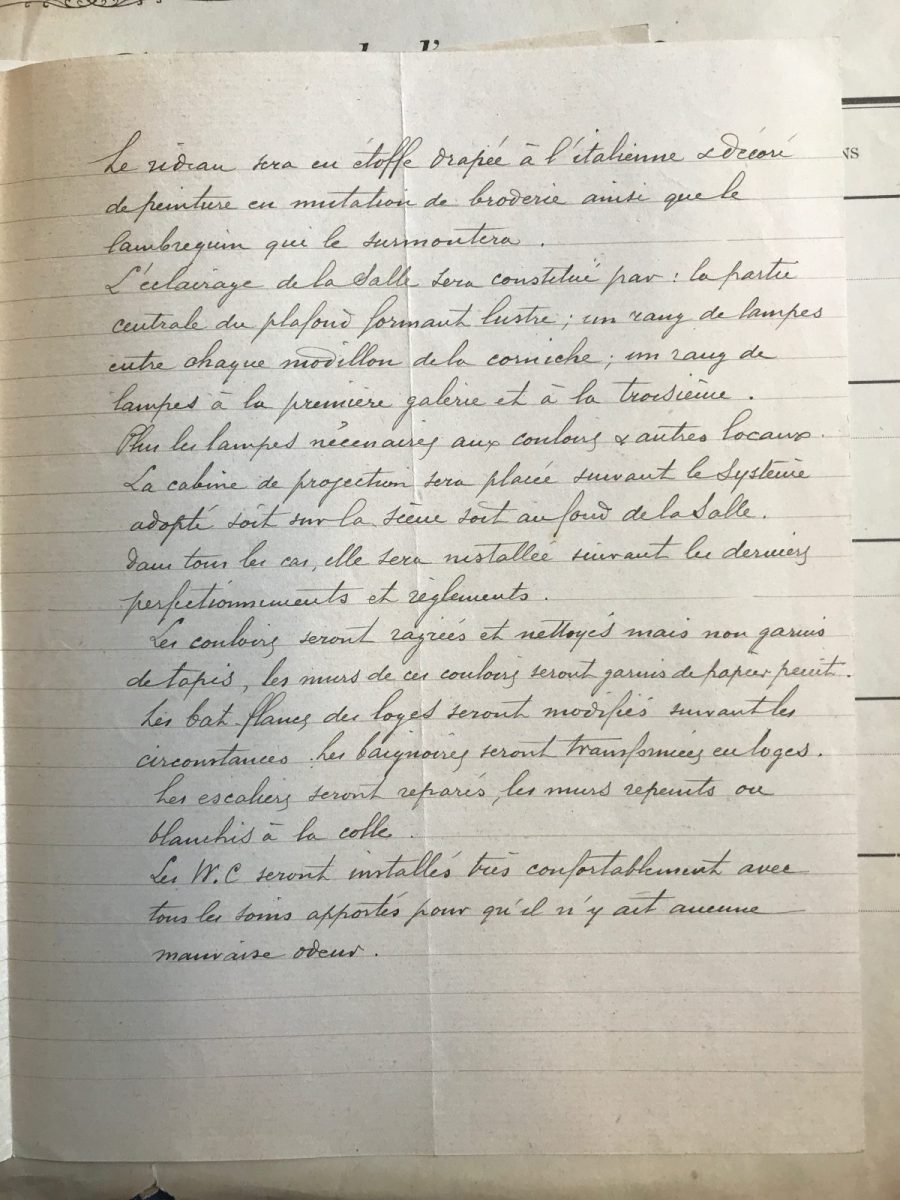 Le rideau sera en étoffe drapée à l'italienne & décoré
de peinture en imitation de broderie ainsi que le
lambrequin qui le surmontera.
L'éclairage de la Salle sera constitué par : la partie
centrale du plafond formant lustre ; un rang de lampes
entre chaque modillon de la corniche ; un rang de
lampes à la première galerie et à la troisième.
Plus les lampes nécessaires aux couloirs & autres locaux.
La cabine de projection sera placée suivant le Système
adopté soit sur la scène soit au fond de la Salle.
dans tous les cas, elle sera installée suivant les derniers
perfectionnements et règlements.
Les couloirs seront ragréés et nettoyés mais non garnis
de tapis, les murs de ces couloirs seront garnis de papier peint.
Les bat-flancs des loges seront modifiés suivant les
circonstances. Les baignoires seront transformées en loges.
Les escaliers seront réparés, les murs repeints ou
blanchis à la colle.
Les W.C seront installés très confortablement avec
tous les soins apportés pour qu'il n'y ait aucune
mauvaise odeur.
NS